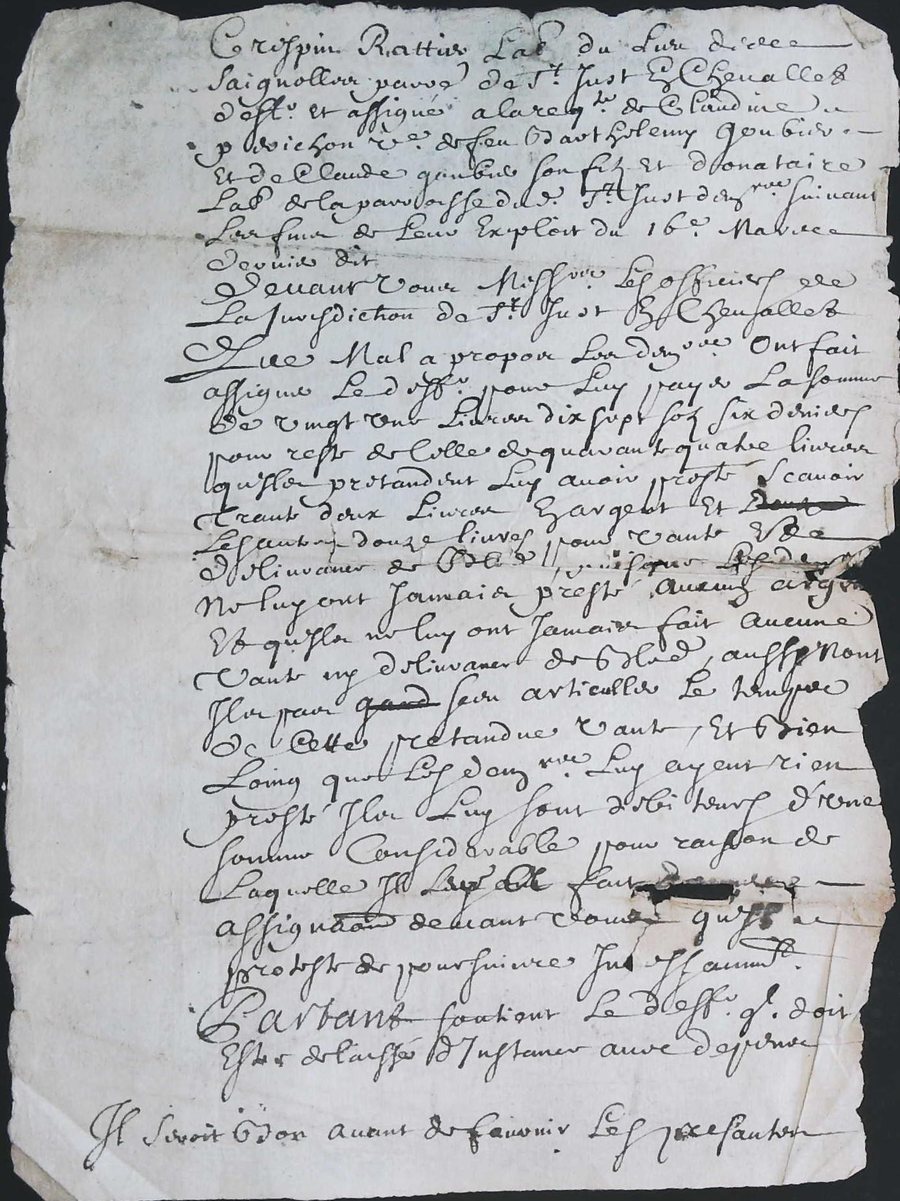 Crespin Rattier Lab^r du lieu de
Saignolles parr^e de S^t Just En Chevallet
deff^r et assigné a la req^te de Claudine
p vichon v^e de feu Barthelemy goubier
Et de Claude goubier son filz Et donataire
Lab^r de la parroisse dud. S^t Just dem^rs suivant
Les fins de Leur Exploit du 16^e Mars
dernier dit
Devant Vous Mess^rs Les officiers de
La Jurisdiction de S^t Just En Chevallet
Que Mal a propos Les dem^rs Ont fait
assigner Le deff^r pour Luy payer La somme
de vingt une Livres dix sept solz six deniers
pour reste de Celle de quarante quatre livres
qu'ils pretandent Luy avoir presté Scavoir
Trante deux Livres En argent Et
Les autres douze livres pour vante Et
delivrance de Bled, puisque Les dem^rs
Ne luy ont Jamais presté aucung argen
Et qu'ils ne luy ont Jamais fait aucune
vante ny delivrance de Bled, aussy N'ont
Ils pas sceu articuller Le temps
de Cette pretandue vante, Et Bien
Loing que Les dem^rs Luy ayent rien
presté Ils Luy sont debiteurs d'une
somme Considerable pour raison de
Laquelle Il fait
assignaon devant vous qu'il
proteste de poursuivre Incessamm^t.
Partant soutient Le deff^r q^l. doit
Estre delaissé d'Instance avec depens
Il seroit Bon avant de fournir Les presantes